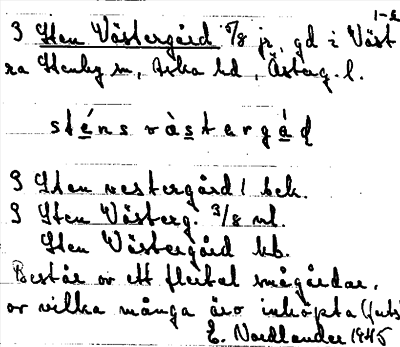 1-2
9 Sten Västergård 7/8 jr, gd i Väst
ra Stenby sn, Aska hd, Österg. l.
sténs västergård
9 Sten nestergård 1 bek.
9 Sten Västerg. 3/8 ml.
Sten Västergård kb.
Består av ett flertal smågårdar,
av vilka många äro inköpta
E. Nordlander 1945